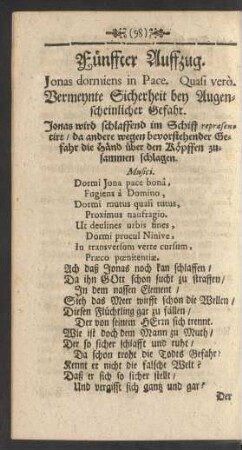 (98)
Fünffter Auffzug.
Jonas dormiens in Pace. Quasi verò.
Vermeynte Sicherheit bey Augen-
scheinlicher Gefahr.
Jonas wird schlaffend im Schiff repræsen-
tirt / da andere wegen bevorstehender Ge-
fahr die Händ über den Köpffen zu-
sammen schlagen.
Musici.
Dormi Jona pace bonâ,
Fugiens à Domino,
Dormi mutus quasi tutus,
Proximus naufragio.
Ut declines urbis fines,
Dormi procul Ninive,
In transversum verte cursum,
Præco pœnitentiæ.
Ach daß Jonas noch kan schlaffen /
Da ihn GOtt schon sucht zu straffen /
In dem nassen Element /
Sieh das Meer wirfft schon die Wellen /
Diesen Flüchtling gar zu fällen /
Der von seinem HErrn sich trennt.
Wie ist doch dem Mann zu Muth /
Der so sicher schlafft und ruht /
Da schon troht die Todts Gefahr?
Kennt er nicht die falsche Welt?
Daß er sich so sicher stellt /
Und vergißt sich gantz und gar?
Der